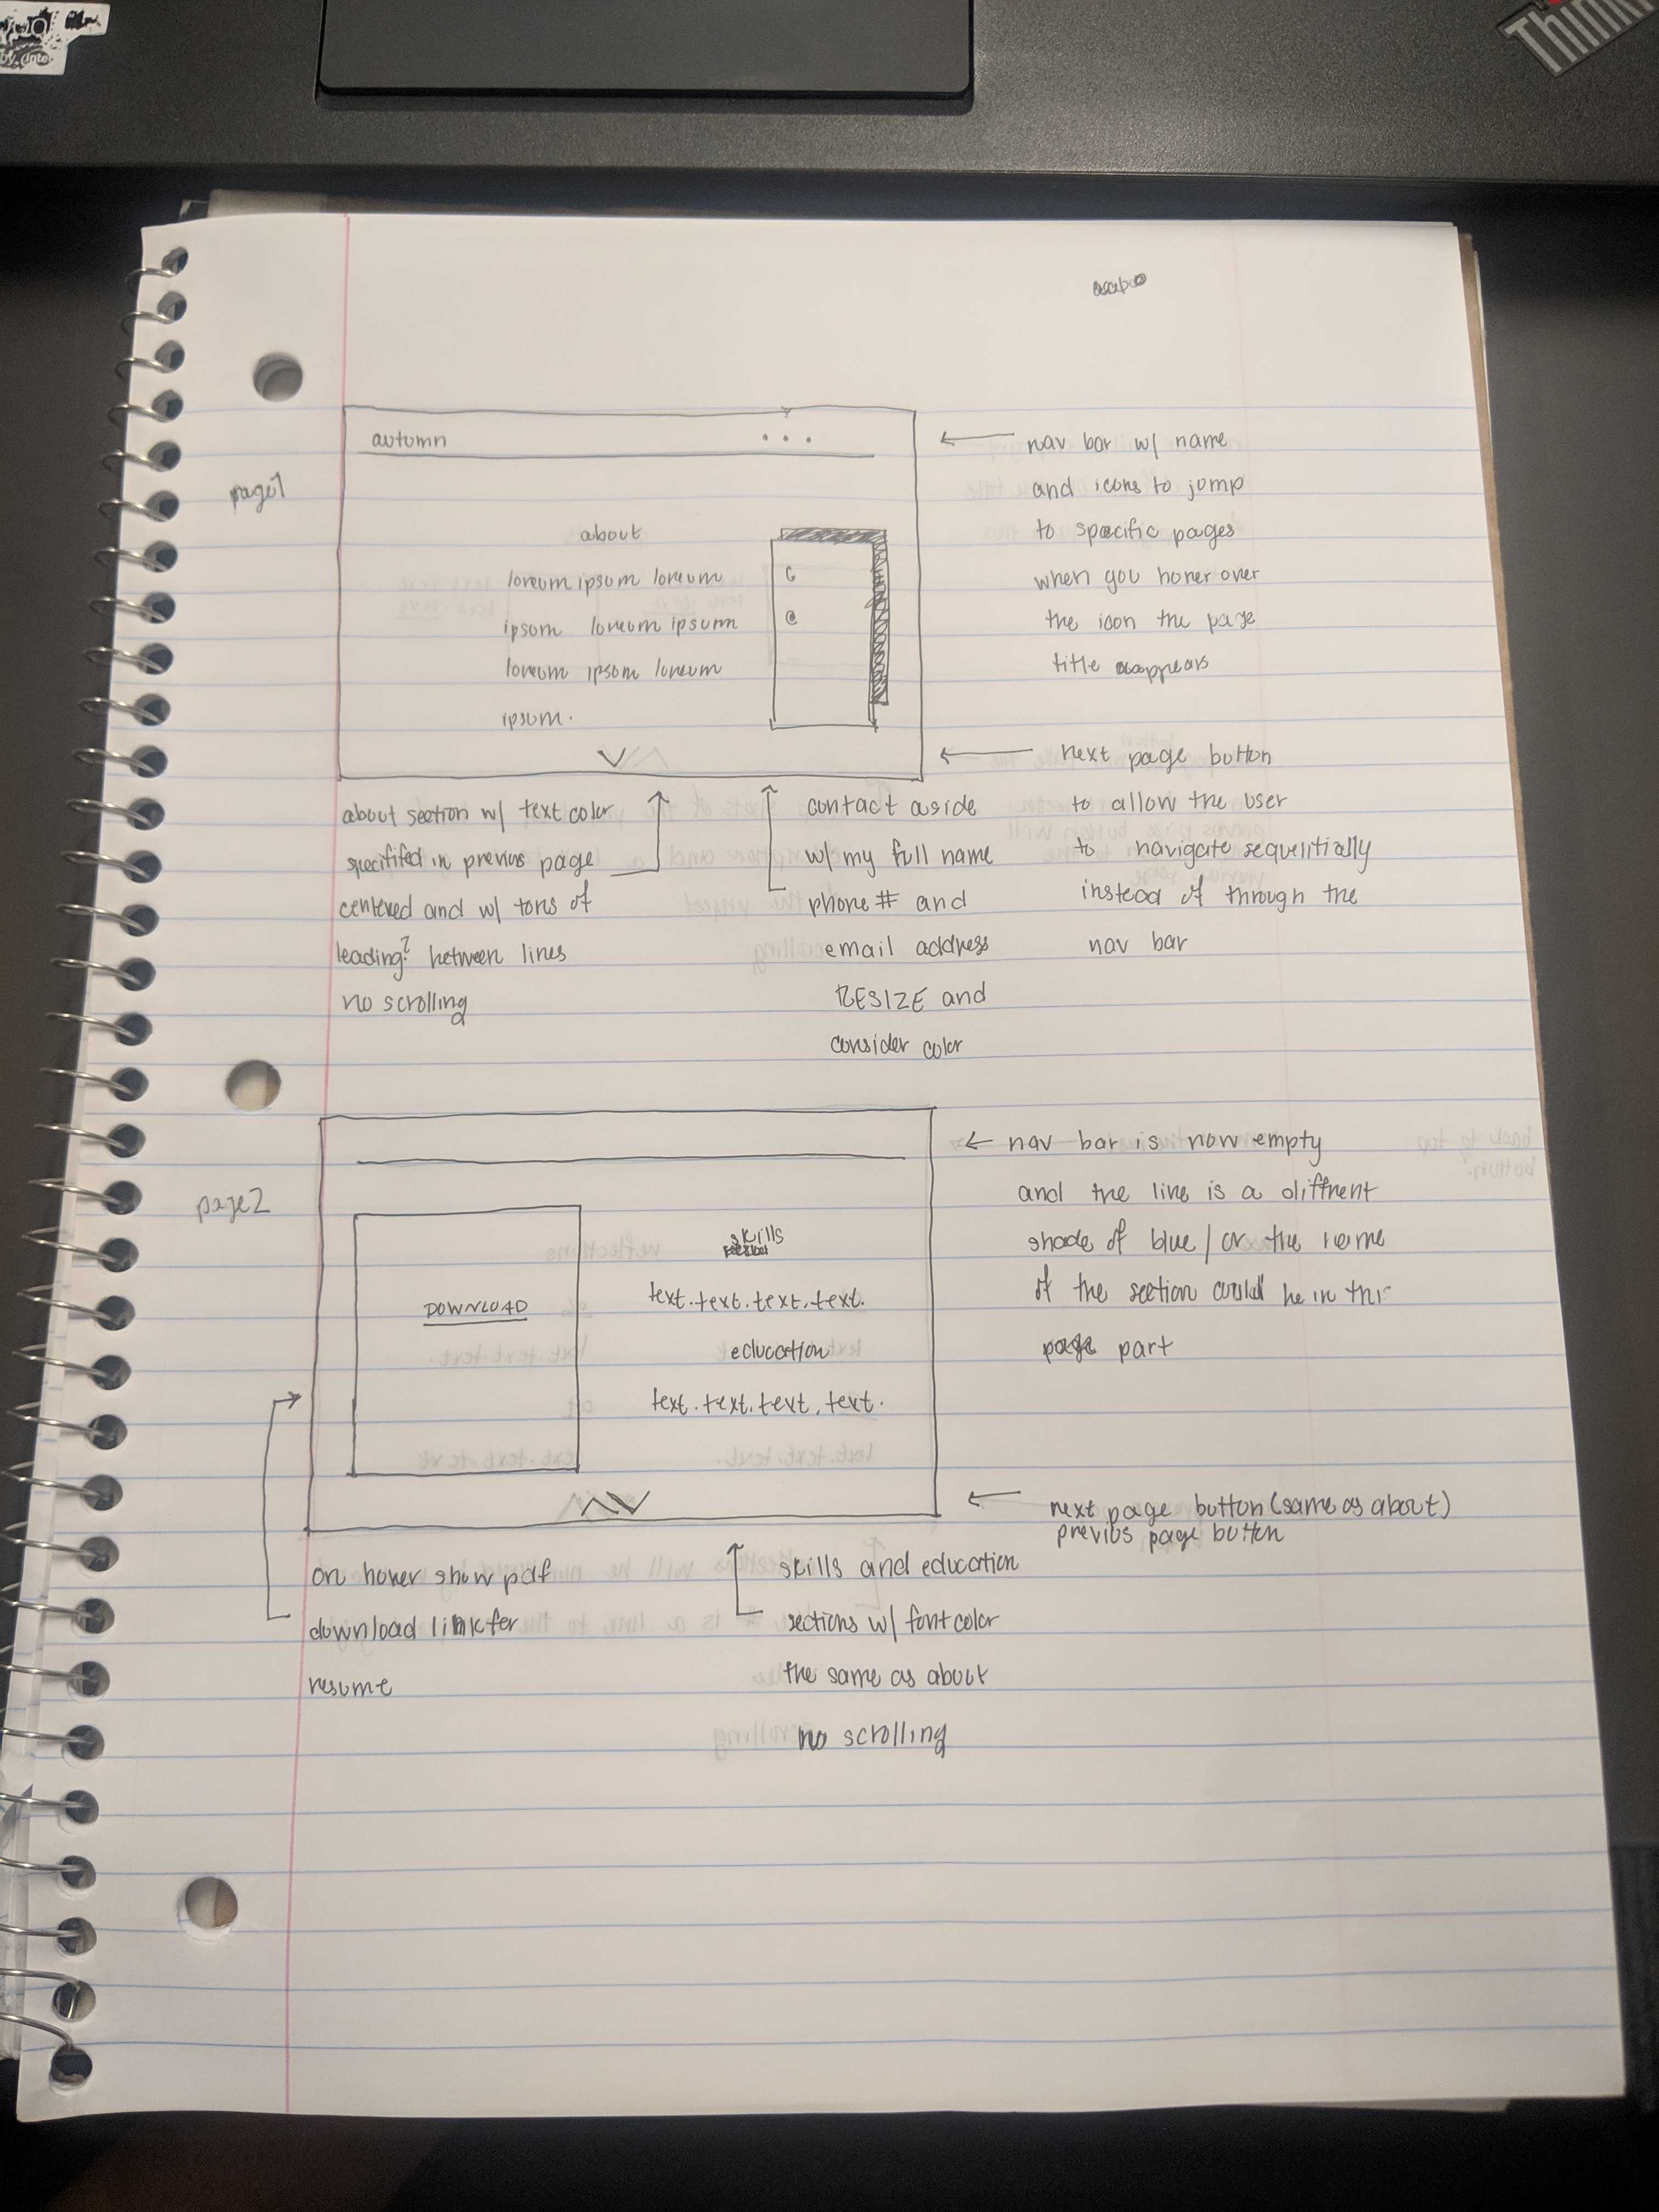 Think
page1
autumn
...
about
loreum ipsum loreum
ipsum loreum ipsum
loreum ipsum loreum
ipsum.
C
@
nav bar w/ name
and icons to jump
to specific pages
when you hover over
the icon the page
title appears
next page button
to allow the user
to navigate sequentially
instead of through the
nav bar
about section w/ text color
specififed in previus page
centered and w/ tons of
leading? between lines
no scrolling
contact aside
w/ my full name
phone # and
email address
RESIZE and
consider color
page2
DOWNLOAD
skills
text.text.text.text.
education
text.text.text.text.
nav bar is now empty
and the line is a diffrent
shade of blue / or the name
of the section could be in this
page part
next page button (same as about)
previus page button
on hover show pdf
download link for
resume
skills and education
sections w/ font color
the same as about
no scrolling